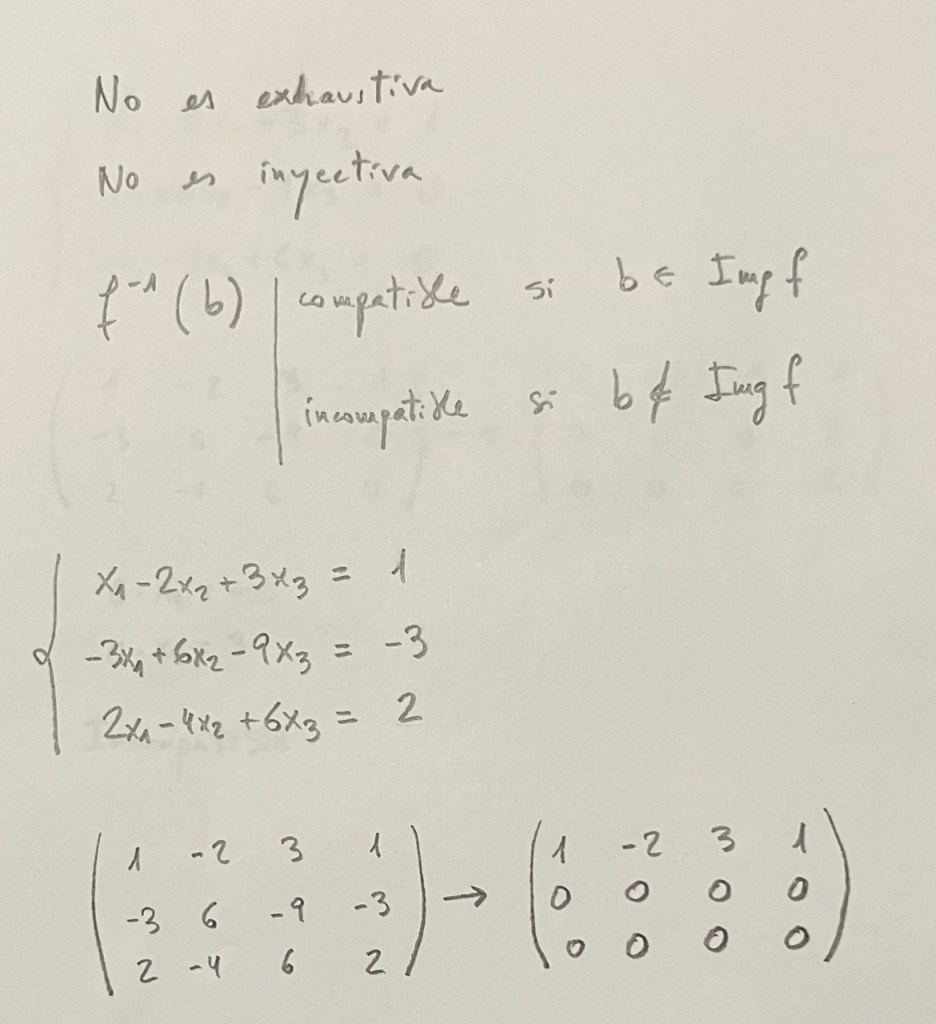 No es exhaustiva
No es inyectiva
f⁻¹(b) | compatible si b ∈ Img f
incompatible si b ∉ Img f
x₁ - 2x₂ + 3x₃ = 1
-3x₁ + 6x₂ - 9x₃ = -3
2x₁ - 4x₂ + 6x₃ = 2
( 1 -2 3 1 ) → ( 1 -2 3 1 )
( -3 6 -9 -3 ) ( 0 0 0 0 )
( 2 -4 6 2 ) ( 0 0 0 0 )